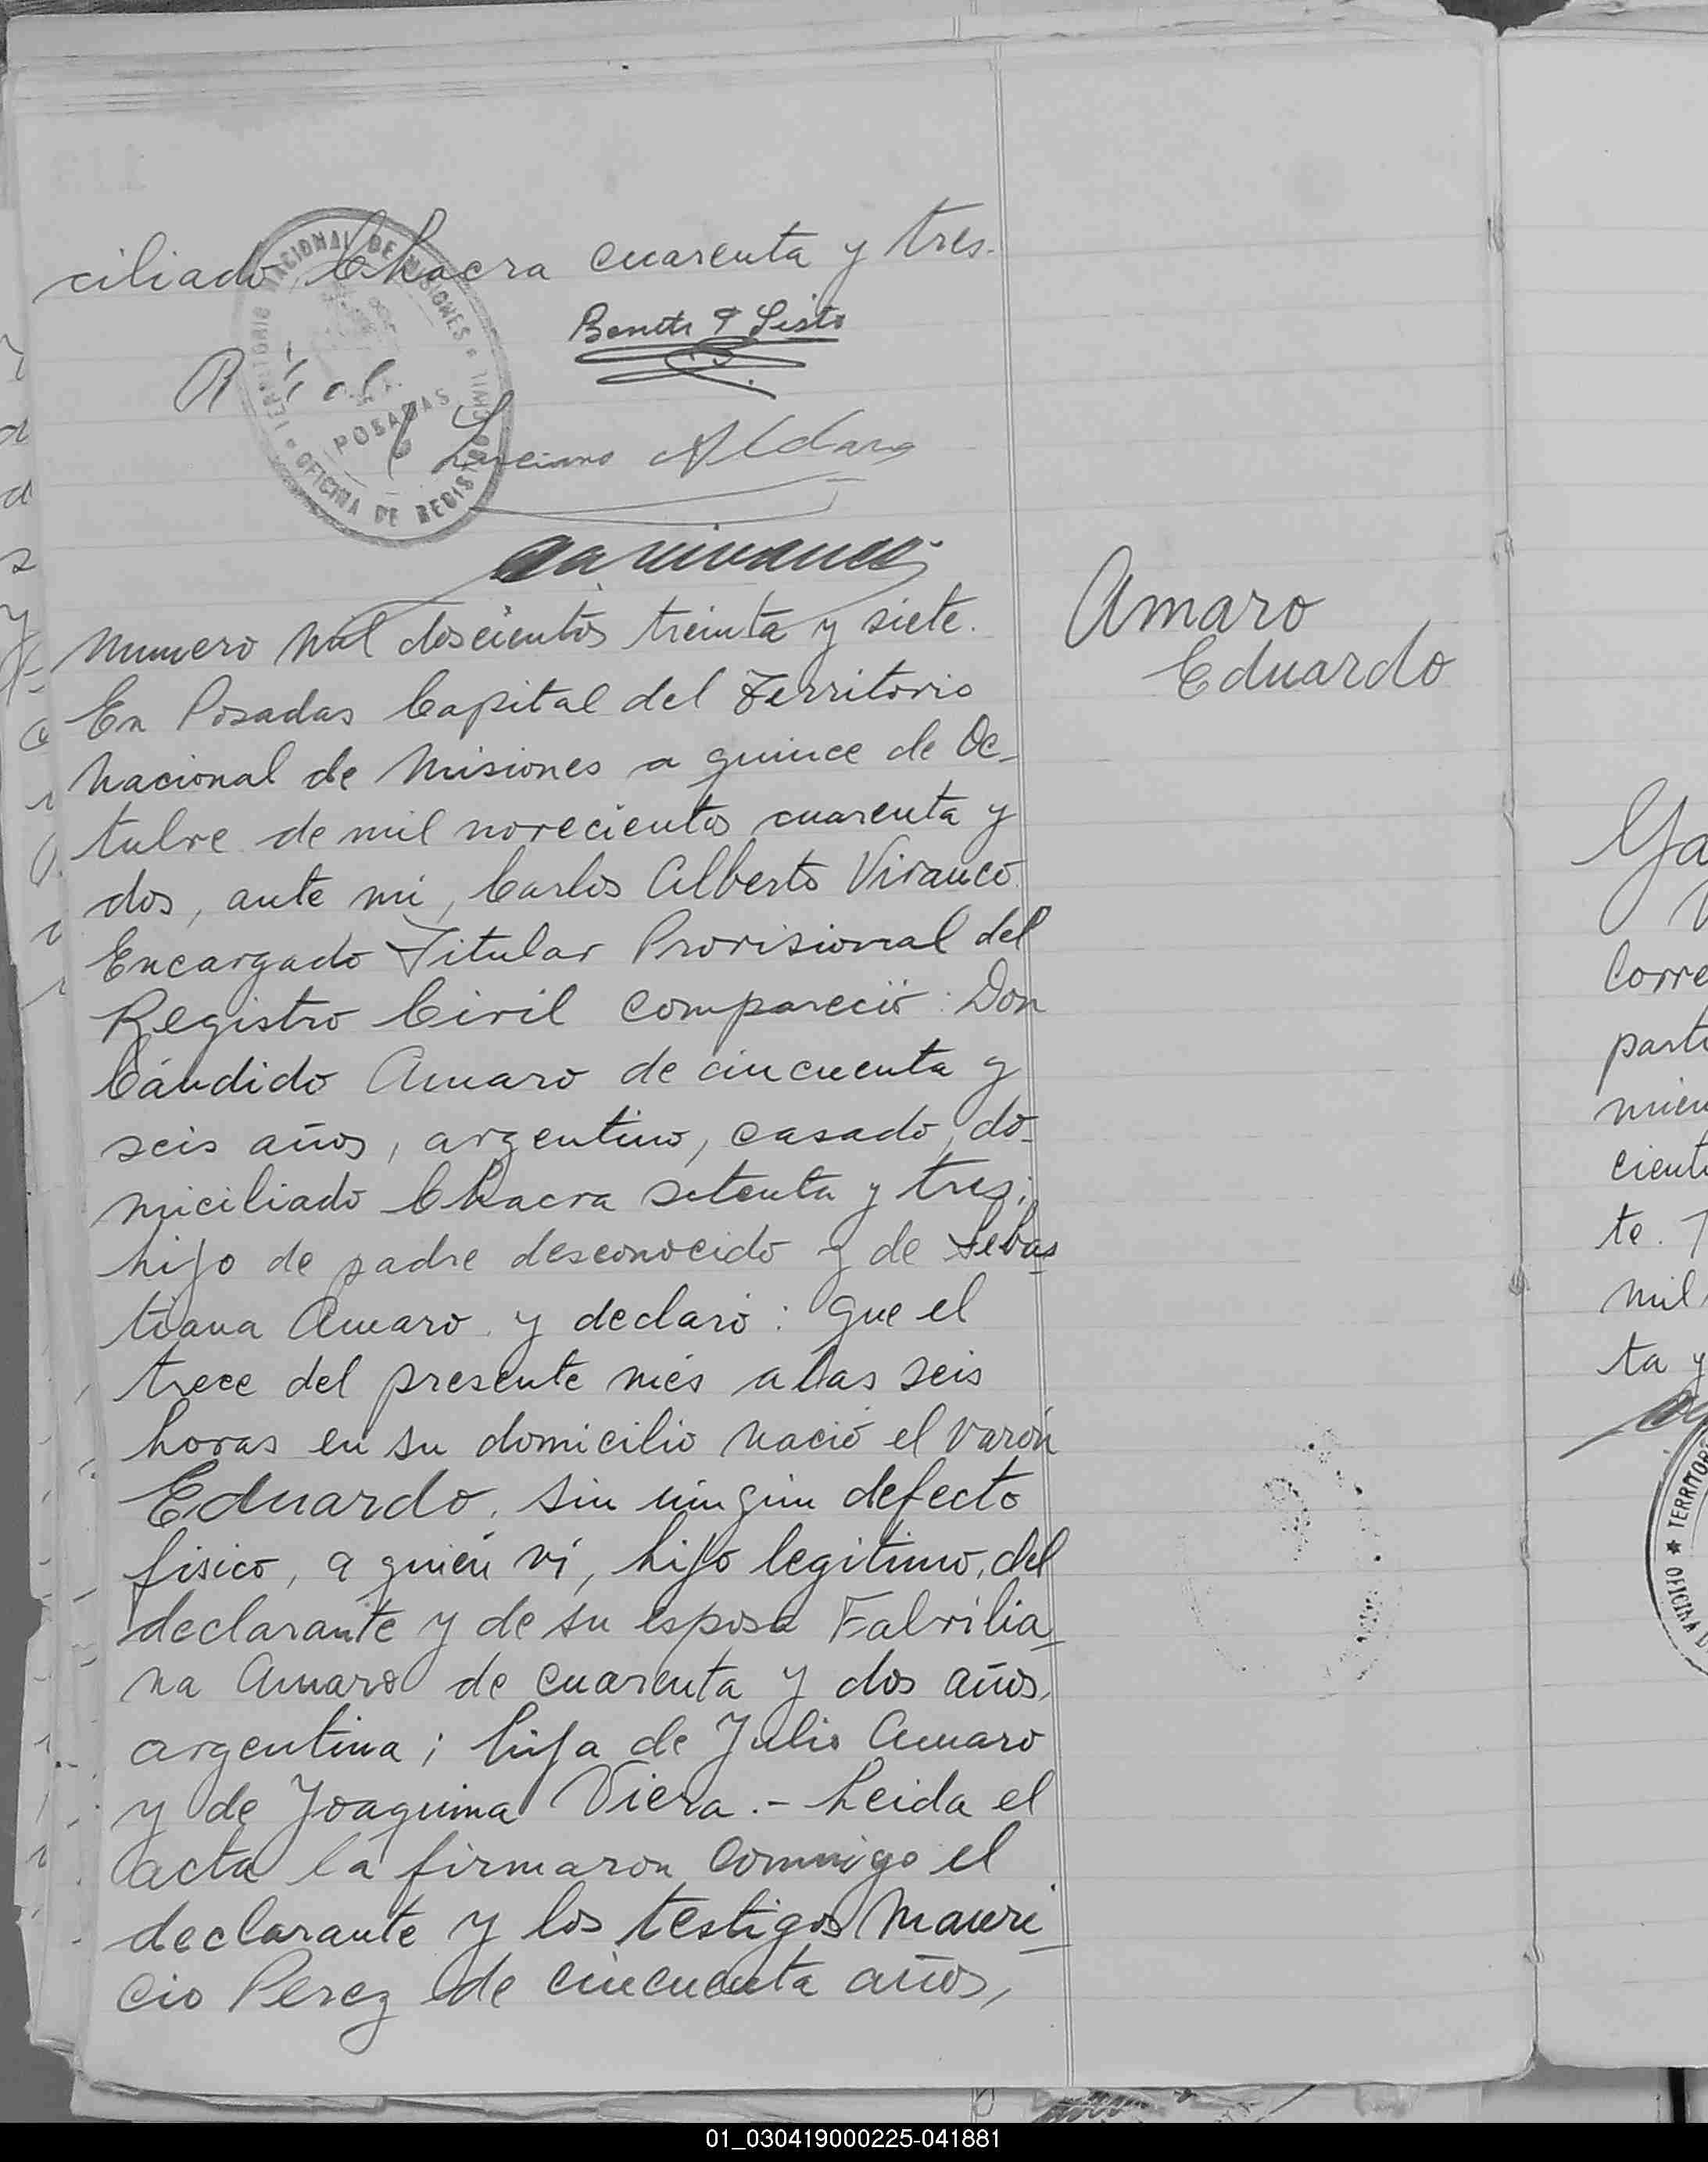 ciliado, Chacra cuarenta y tres.
TERRITORIO NACIONAL DE MISIONES
POSADAS
OFICINA DE REGISTRO CIVIL
Luciano Aldana
Numero mil doscientos treinta y siete.
Amaro
Eduardo
En Posadas Capital del Territorio
Nacional de Misiones a quince de Oc-
tubre de mil novecientos cuarenta y
dos, ante mi, Carlos Alberto Vivanco
Encargado Titular Provisional del
Registro Civil compareció: Don
Cándido Amaro de cincuenta y
seis años, argentino, casado, do-
miciliado Chacra setenta y tres;
hijo de padre desconocido y de Sebas-
tiana Amaro y declaró: Que el
trece del presente més a las seis
horas en su domicilio nació el varón
Eduardo, sin ningun defecto
fisico, a quién ví, hijo legitimo, del
declarante y de su esposa Fabrilia-
na Amaro de cuarenta y dos años,
argentina; hija de Julio Amaro
y de Joaquina Viera.- Leida el
acta la firmaron conmigo el
declarante y los testigos Mauri-
cio Perez de cincuenta años,
Corre
part
mien
cient
te.
mil
ta y
TERRITOR
OFICINA D
01_030419000225-041881